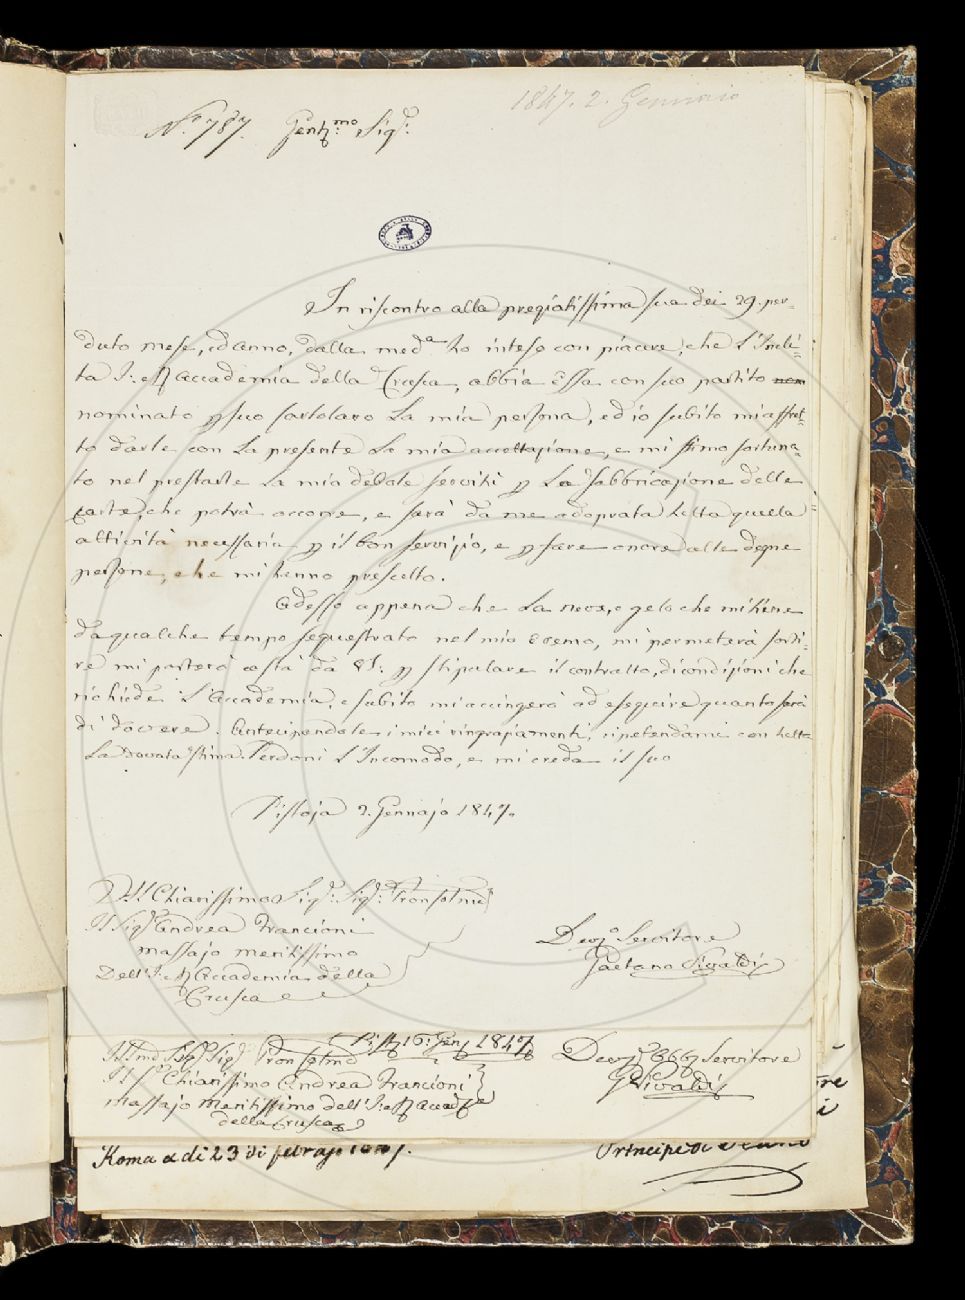 1847. 2. Gennaio
N.° 787. Gent.mo Sig.r
In riscontro alla pregiatissima sua dei 29. per-
duto mese, ed anno, dalla med.a ho inteso con piacere, che l'Incli=
ta I: e R Accademia della Crusca, abbia essa con suo partito non
nominato p suo cartolaro la mia persona, ed io subito mi affret=
to darle con la presente la mia accettazione, e mi stimo fortuna=
to nel prestarle la mia debole servitù p la fabbricazione delle
carte, che potrà occorre, e sarà da me adoprata tutta quella
attività necessaria p il bon servizio, e p fare onore alle degne
persone, che mi hanno prescelto.
Adesso appena che la neve, e gelo che mi tiene
da qualche tempo sequestrato nel mio eremo, mi permeterà sorti=
re mi porterò costà da p stipulare il contratto, di condizioni che
richiede l'Accademia, e subito mi accingerò ad eseguire quanto sarà
di dovere. Antecipandole i miei ringraziamenti, ripetendomi con tutta
la dovuta stima. Perdoni l'Incomodo, e mi creda il suo
Pistoja 2. Gennajo 1847.
All' Chiarissimo Sig.r Sig.r Pron Colmo
Il Sig.r Andrea Francioni
massajo meritissimo
Dell' I: e R Accademia della
Crusca
Devo Servitore
Gaetano Vivaldi
16. Gen 1847
Sig.r Pron Colmo
Il Chiarissimo Andrea Francioni
massajo meritissimo dell' I: e R Accad
della Crusca
Devo Obbgo Servitore
G Vivaldi
Roma a di 23 di febrajo 1847.
Principe di